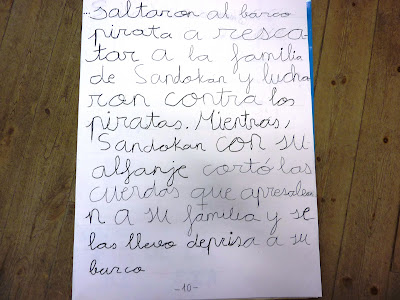 ...saltaron al barco
pirata a resca-
tar a la familia
de Sandokan y lucha
ron contra los
piratas. Mientras,
Sandokan con su
alfanje cortó las
cuerdas que apresaba
n a su familia y se
las llevo deprisa a su
barco
-10-